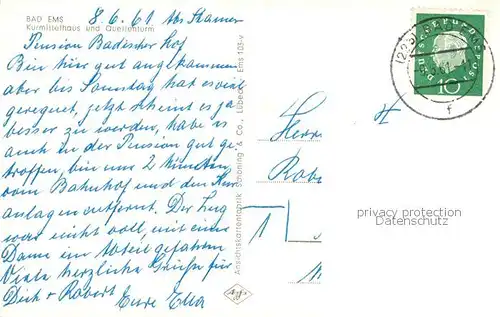 8.6.61 Abs Stamer
BAD EMS
Kurmittelhaus und Quellenturm
Pension Badischer Hof
Bin hier gut angekommen
aber bis Samstag hat es viel
geregnet, jetzt scheint es ja
besser zu werden, habe es
auch in der Pension gut ge-
troffen, bin nur 2 Minuten
vom Bahnhof und den Kur
anlagen entfernt. Der Zug
war nicht voll, mit einer
Dame im Abteil gefahren
Viele herzliche Grüße für
Dich + Robert Eure Ella
Ansichtskartenfabrik Schöning & Co., Lübeck
Ems 105-v
DEUTSCHE BUNDESPOST
10
Herrn
privacy protection
Datenschutz
1